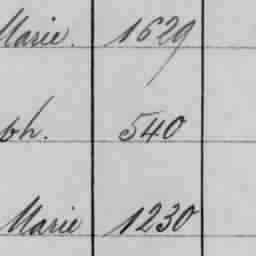 Marie. 1629
ph. 540
Marie 1230